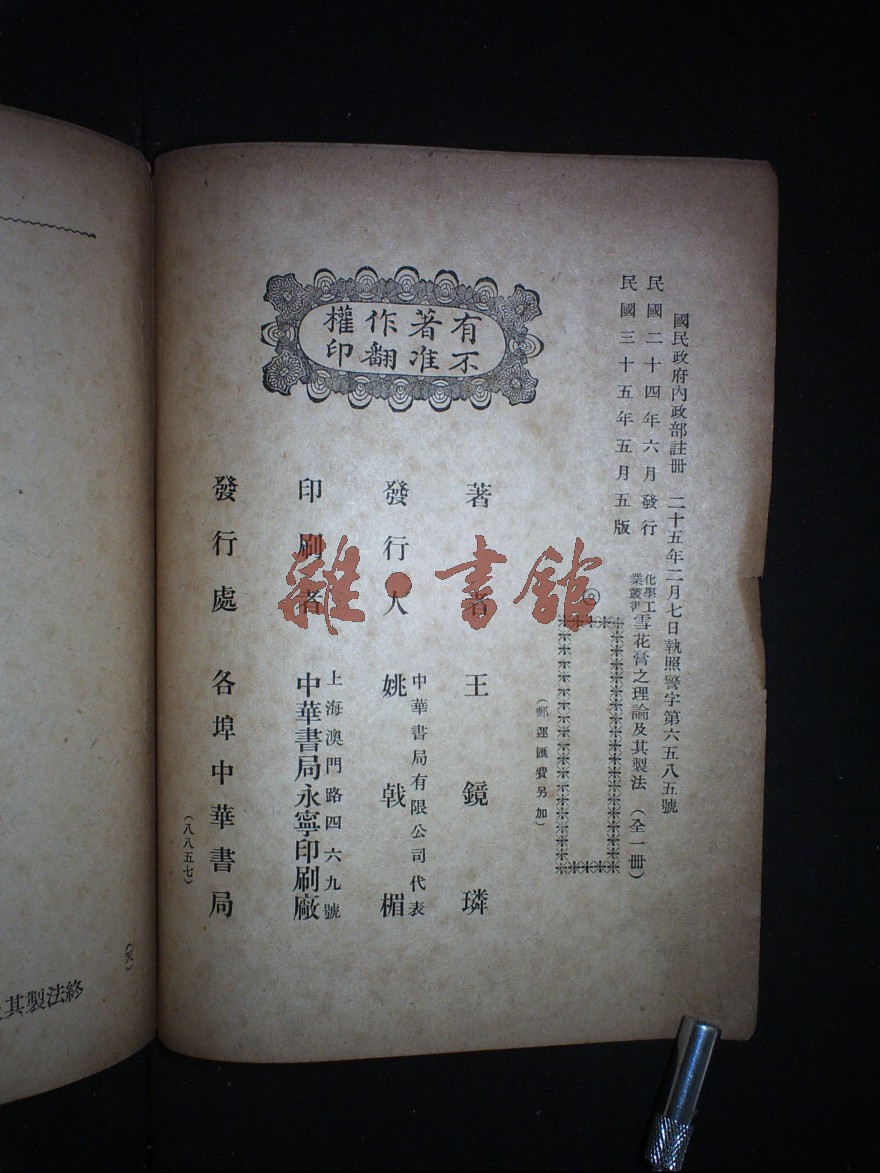 國民政府內政部註冊 二十五年二月七日執照警字第六五八五號
民國二十四年六月發行
民國三十五年五月五版
化學工業叢書 雪花膏之理論及其製法 (全一冊)
(郵運匯費另加)
有著作權
不准翻印
著者 王鏡璘
發行人 姚戟楣
中華書局有限公司代表
印刷者
上海澳門路四六九號
中華書局永寧印刷廠
發行處 各埠中華書局
(八八五七)
雜·書館
終法製其